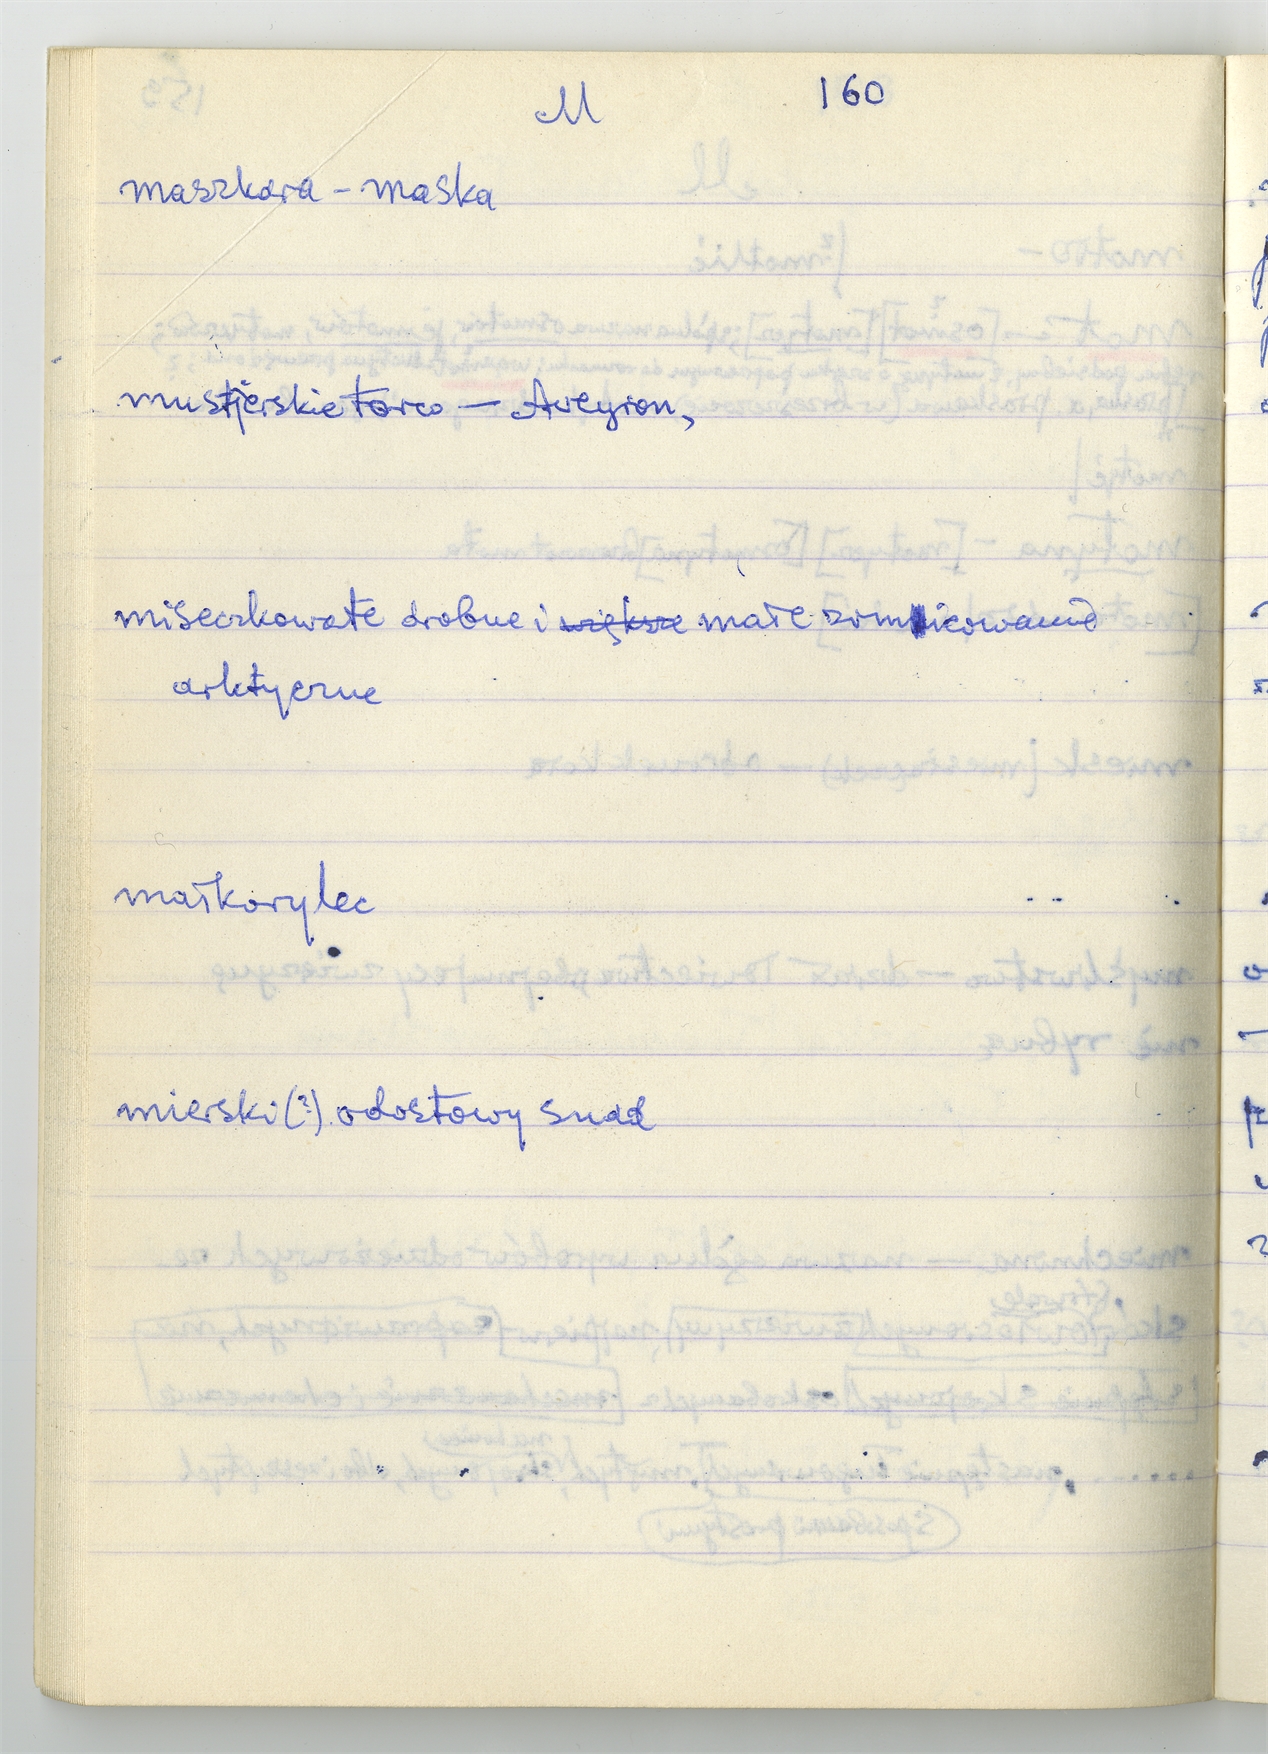 M 160
maszkara – maska
mustjerskie torco – Aveyron,
miseczkowate drobne i większe małe
arktyczne
małkorylec
mierski (?) odostowy snad